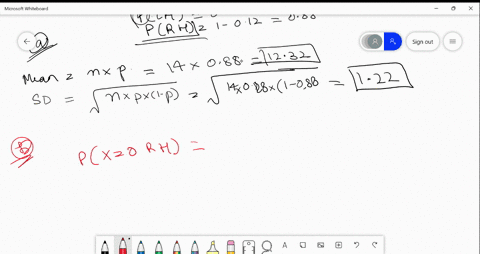 Microsoft Whiteboard
P(RH) = 1-0.12 = 0.88
a
Sign out
Mean = n×p = 14 × 0.88 = 12.32
SD = √n×p×(1-p) = √14×0.88×(1-0.88 = 1.22
b
P(X=0 RH) =